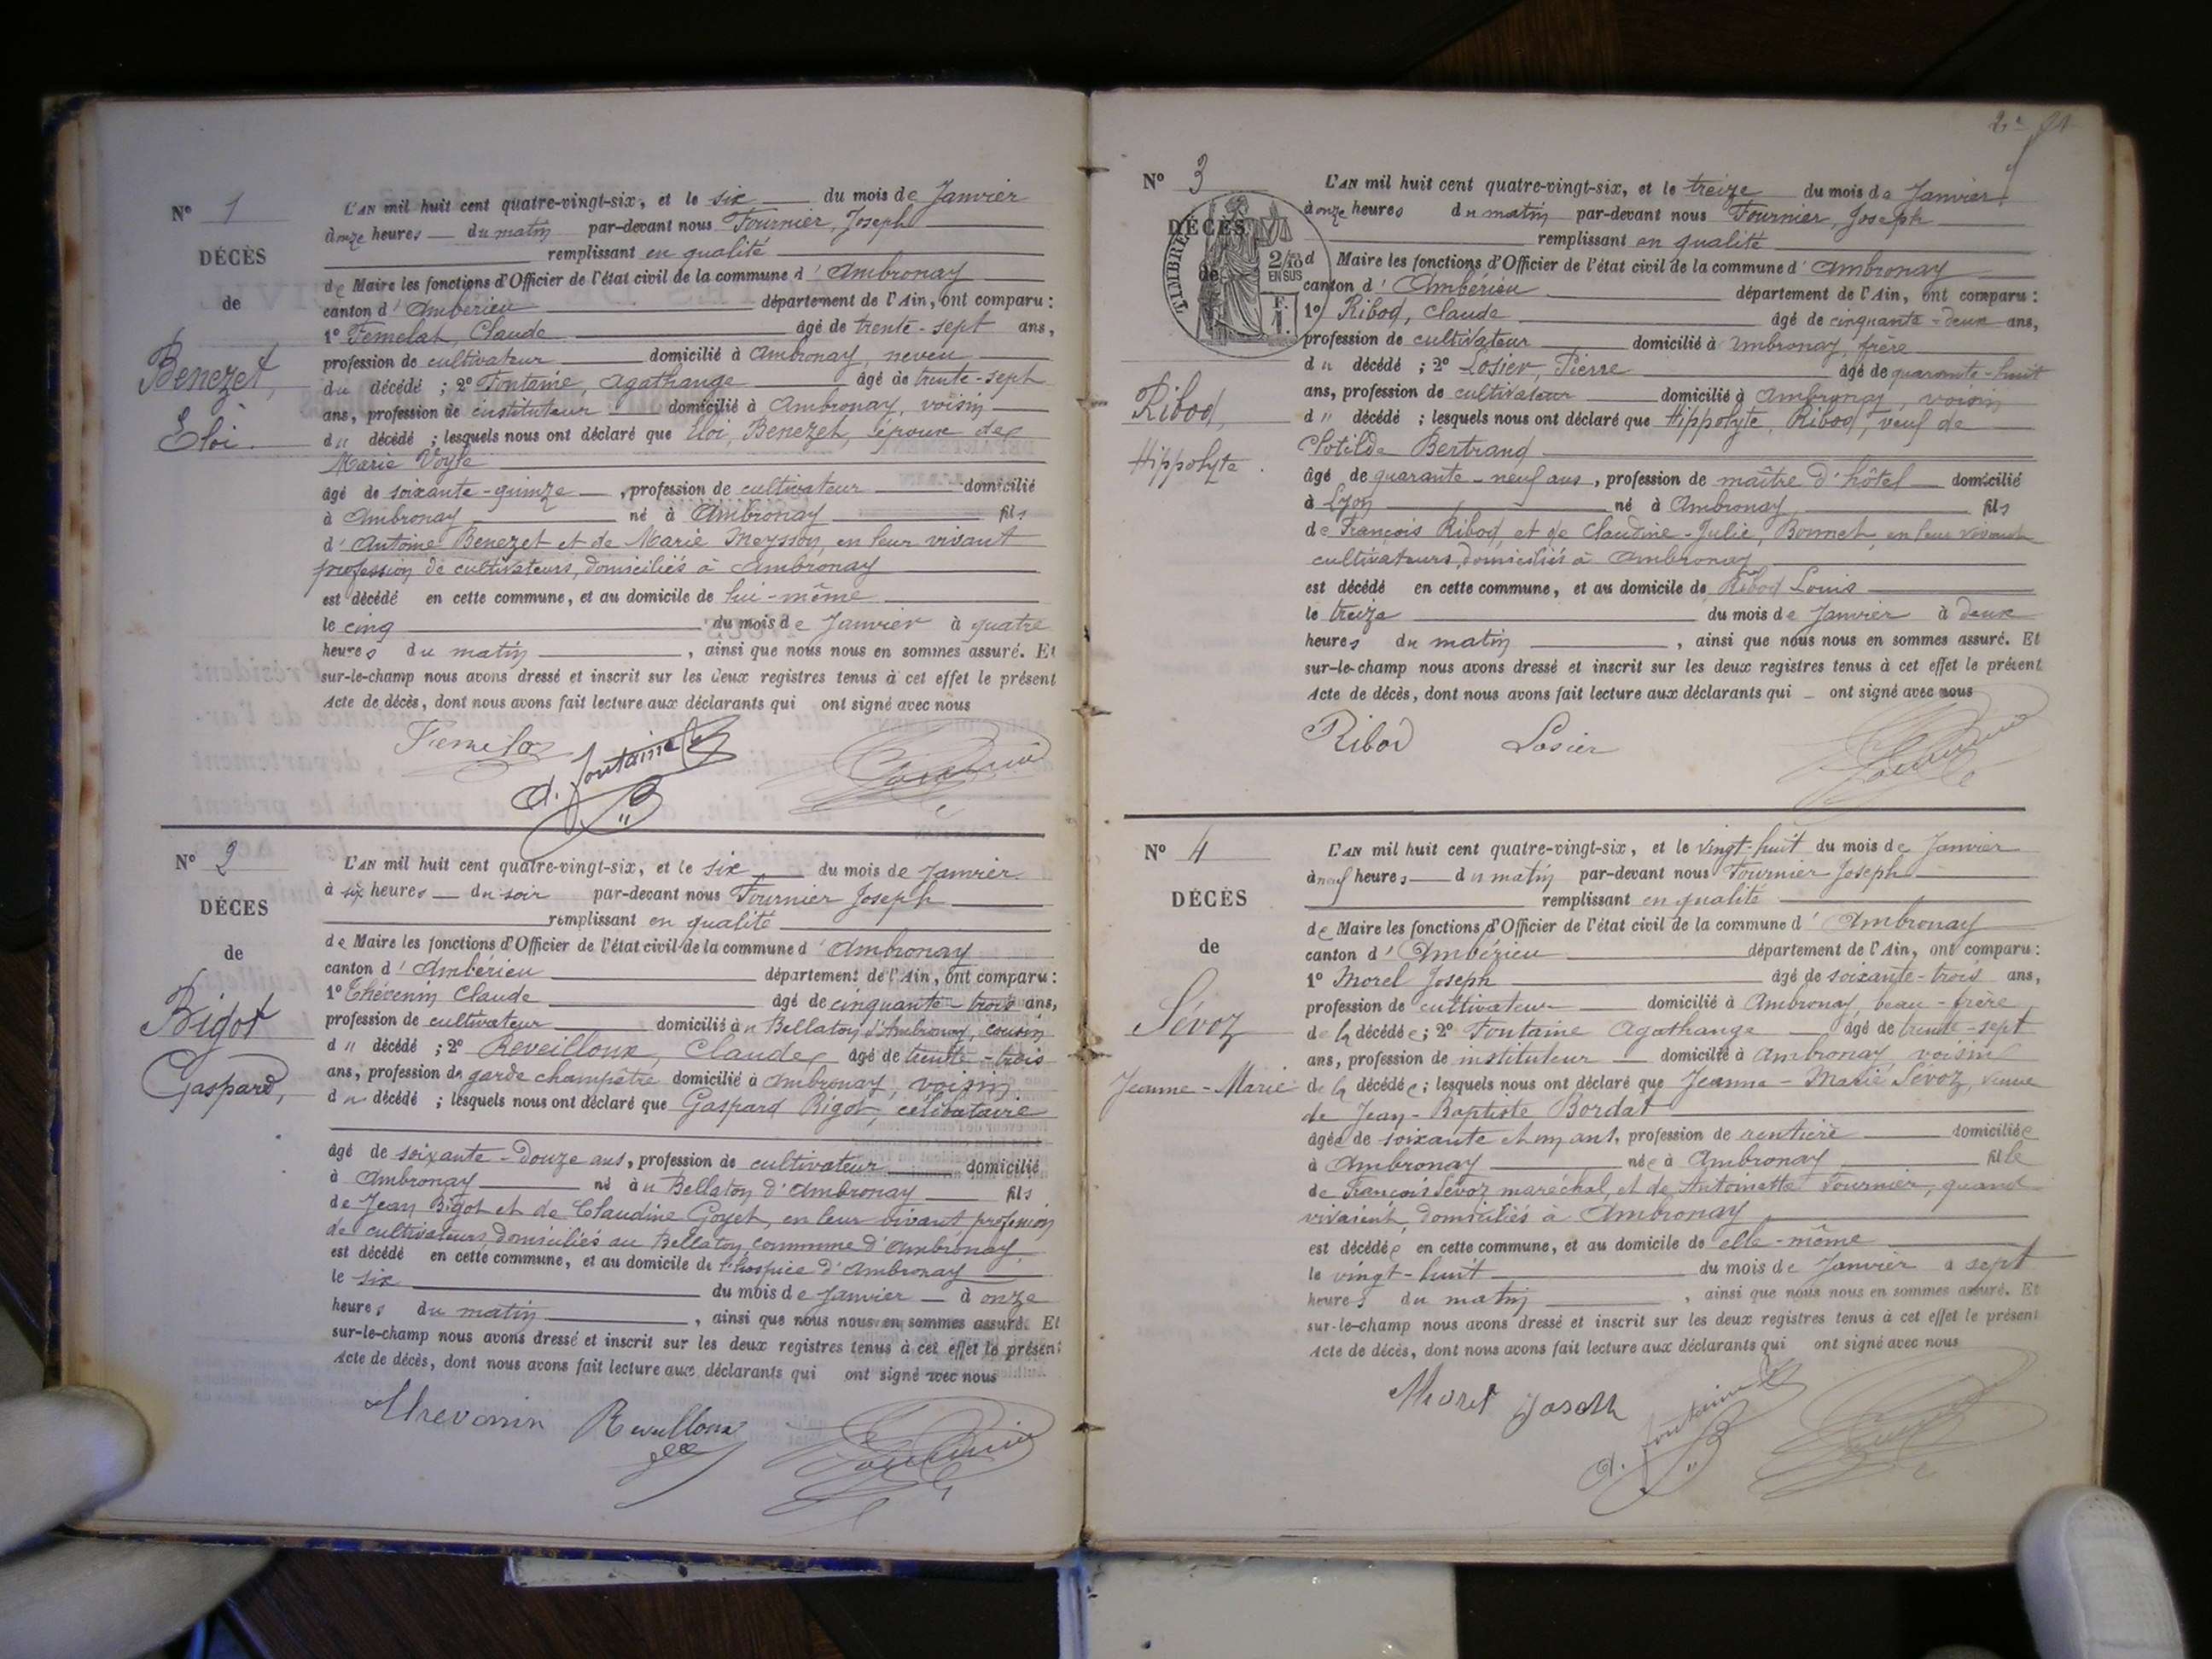 Nº 1
DÉCÈS
de
Benezet,
Eloi.
L'AN mil huit cent quatre-vingt-six, et le six du mois de Janvier
à onze heures du matin par-devant nous Fournier, Joseph
remplissant en qualité
de Maire les fonctions d'Officier de l'état civil de la commune d'Ambronay
canton d'Ambérieu département de l'Ain, ont comparu :
1º Femelat, Claude âgé de trente-sept ans,
profession de cultivateur domicilié à Ambronay, neveu
du décédé ; 2º Fontaine, Agathange âgé de trente-sept
ans, profession de instituteur domicilié à Ambronay, voisin
du décédé ; lesquels nous ont déclaré que Eloi, Benezet, époux de
Marie Voyle
âgé de soixante-quinze , profession de cultivateur domicilié
à Ambronay né à Ambronay fils
d'Antoine Benezet et de Marie Meysson, en leur vivant
profession de cultivateurs, domiciliés à Ambronay
est décédé en cette commune, et au domicile de lui-même
le cinq du mois de Janvier à quatre
heures du matin , ainsi que nous nous en sommes assuré. Et
sur-le-champ nous avons dressé et inscrit sur les deux registres tenus à cet effet le présent
Acte de décès, dont nous avons fait lecture aux déclarants qui ont signé avec nous
A. Fontaine
Nº 2
DÉCES
de
Bigot
Gaspard,
L'AN mil huit cent quatre-vingt-six, et le six du mois de Janvier
à six heures du soir par-devant nous Fournier Joseph
remplissant en qualité
de Maire les fonctions d'Officier de l'état civil de la commune d'Ambronay
canton d'Ambérieu département de l'Ain, ont comparu :
1º Thévenin Claude âgé de cinquante-trois ans,
profession de cultivateur domicilié au Bellaton d'Ambronay, cousin
du décédé ; 2º Reveilloux, Claude âgé de trente-trois
ans, profession de garde champêtre domicilié à Ambronay, voisin
du décédé ; lesquels nous ont déclaré que Gaspard Bigot, célibataire
âgé de soixante-douze ans, profession de cultivateur domicilié
à Ambronay né au Bellaton d'Ambronay fils
de Jean Bigot et de Claudine Goyet, en leur vivant profession
de cultivateurs, domiciliés au Bellaton commune d'Ambronay
est décédé en cette commune, et au domicile de l'hospice d'Ambronay
le six du mois de Janvier à onze
heures du matin , ainsi que nous nous en sommes assuré. Et
sur-le-champ nous avons dressé et inscrit sur les deux registres tenus à cet effet le présent
Acte de décès, dont nous avons fait lecture aux déclarants qui ont signé avec nous
Thevenin Reveilloux
Nº 3
DÉCÈS
de
TIMBRE
2/10 EN SUS
F. 1.
Ribod,
Hippolyte.
L'AN mil huit cent quatre-vingt-six, et le treize du mois de Janvier
à onze heures du matin par-devant nous Fournier, Joseph
remplissant en qualité
d Maire les fonctions d'Officier de l'état civil de la commune d'Ambronay
canton d'Ambérieu département de l'Ain, ont comparu :
1º Ribod, Claude âgé de cinquante-deux ans,
profession de cultivateur domicilié à Ambronay, frère
du décédé ; 2º Losier, Pierre âgé de quarante-huit
ans, profession de cultivateur domicilié à Ambronay, voisin
du décédé ; lesquels nous ont déclaré que Hippolyte, Ribod, veuf de
Clotilde Bertrand
âgé de quarante-neuf ans, profession de maître d'hôtel domicilié
à Lyon né à Ambronay fils
de François Ribod, et de Claudine-Julie, Bonnet, en leur vivant
cultivateurs, domiciliés à Ambronay
est décédé en cette commune, et au domicile de Ribod Louis
le treize du mois de Janvier à deux
heures du matin , ainsi que nous nous en sommes assuré. Et
sur-le-champ nous avons dressé et inscrit sur les deux registres tenus à cet effet le présent
Acte de décès, dont nous avons fait lecture aux déclarants qui ont signé avec nous
Ribod Losier
Nº 4
DÉCÈS
de
Sévoz
Jeanne-Marie
L'AN mil huit cent quatre-vingt-six, et le vingt-huit du mois de Janvier
à neuf heures du matin par-devant nous Fournier Joseph
remplissant en qualité
de Maire les fonctions d'Officier de l'état civil de la commune d'Ambronay
canton d'Ambérieu département de l'Ain, ont comparu :
1º Morel Joseph âgé de soixante-trois ans,
profession de cultivateur domicilié à Ambronay, beau-frère
de la décédée ; 2º Fontaine Agathange âgé de trente-sept
ans, profession de instituteur domicilié à Ambronay voisin
de la décédée ; lesquels nous ont déclaré que Jeanne-Marie Sévoz, veuve
de Jean-Baptiste Bordat
âgée de soixante et onz ans, profession de rentière domiciliée
à Ambronay née à Ambronay fille
de François Sévoz maréchal, et de Antoinette Fournier, quand
vivaient, domiciliés à Ambronay
est décédée en cette commune, et au domicile de elle-même
le vingt-huit du mois de Janvier à sept
heures du matin , ainsi que nous nous en sommes assuré. Et
sur-le-champ nous avons dressé et inscrit sur les deux registres tenus à cet effet le présent
Acte de décès, dont nous avons fait lecture aux déclarants qui ont signé avec nous
Morel Joseph A. Fontaine